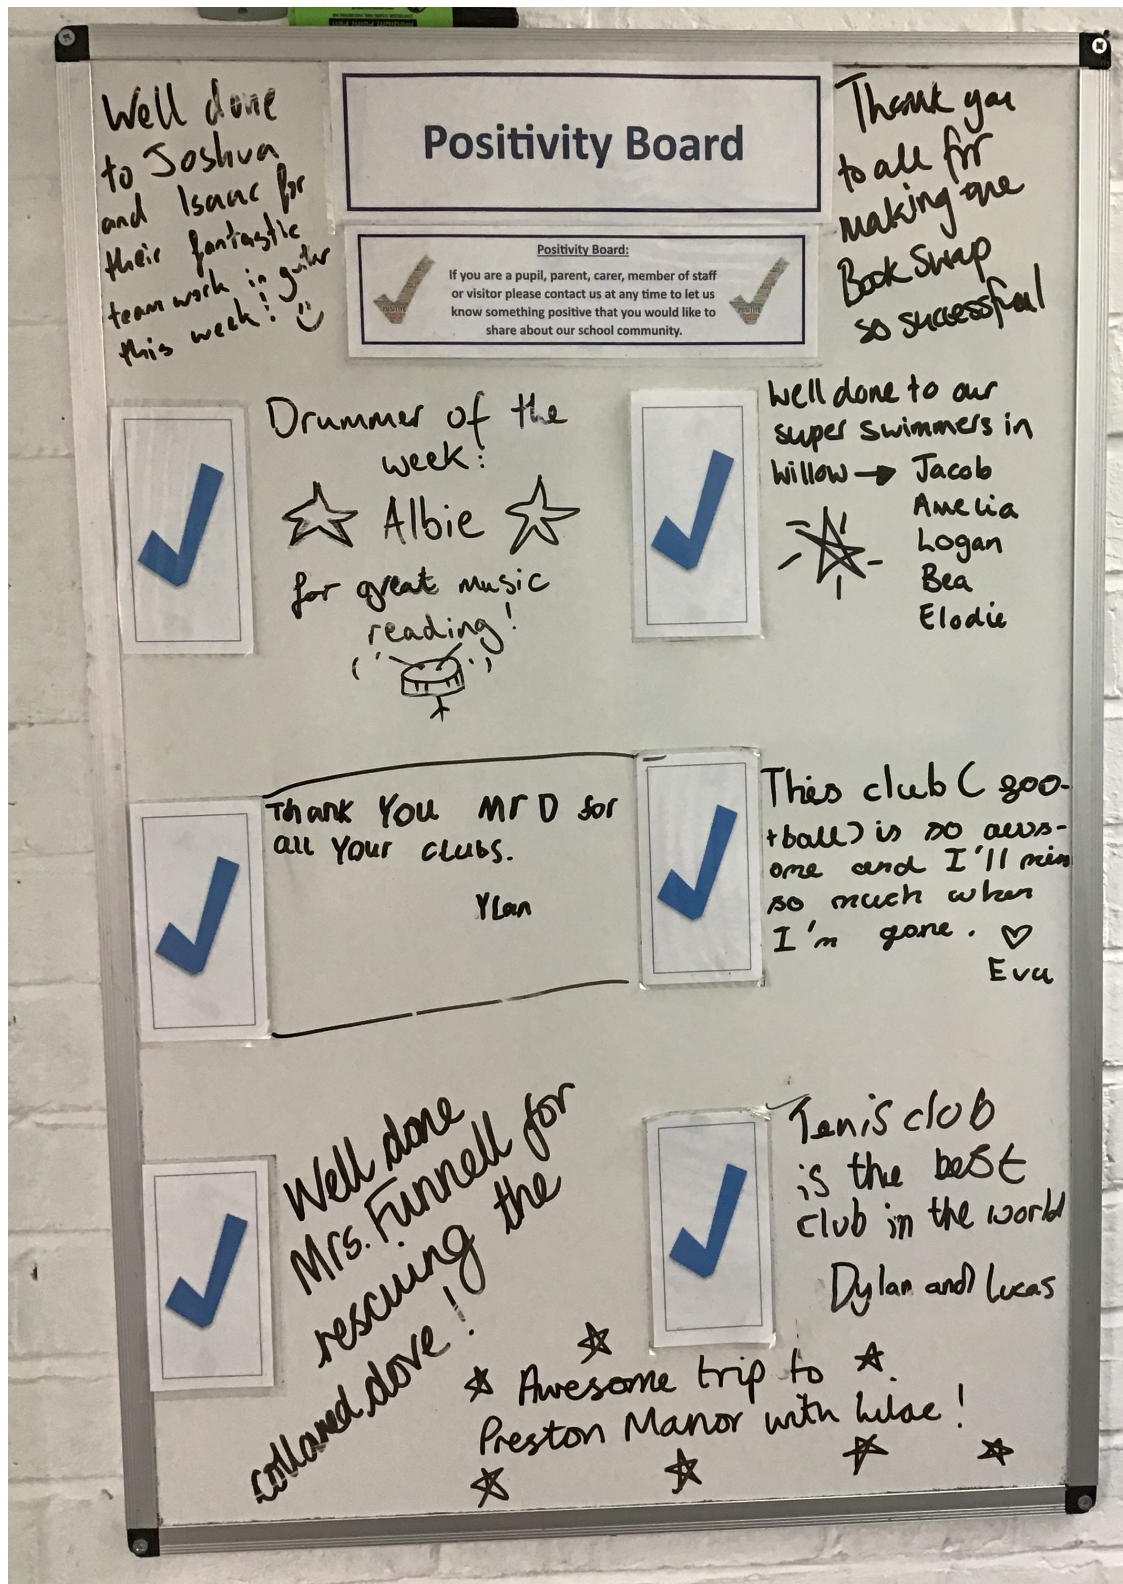 Well done
to Joshua
and Isaac for
their fantastic
teamwork in guitar
this week!
Positivity Board
Positivity Board:
If you are a pupil, parent, carer, member of staff
or visitor please contact us at any time to let us
know something positive that you would like to
share about our school community.
Thank you
to all for
making the
Book Swap
so successful
Drummer of the
week:
Albie
for great music
reading!
Well done to our
super swimmers in
Willow → Jacob
Amelia
Logan
Bea
Elodie
Thank You Mr D for
all Your clubs.
Ylan
This club ( foo-
tball) is so awes-
ome and I'll miss
so much when
I'm gone. ♡
Eva
Well done
Mrs. Funnell for
rescuing the
collared dove!
Tenis club
is the best
club in the world
Dylan and Lucas
Awesome trip to
Preston Manor with Lilac!